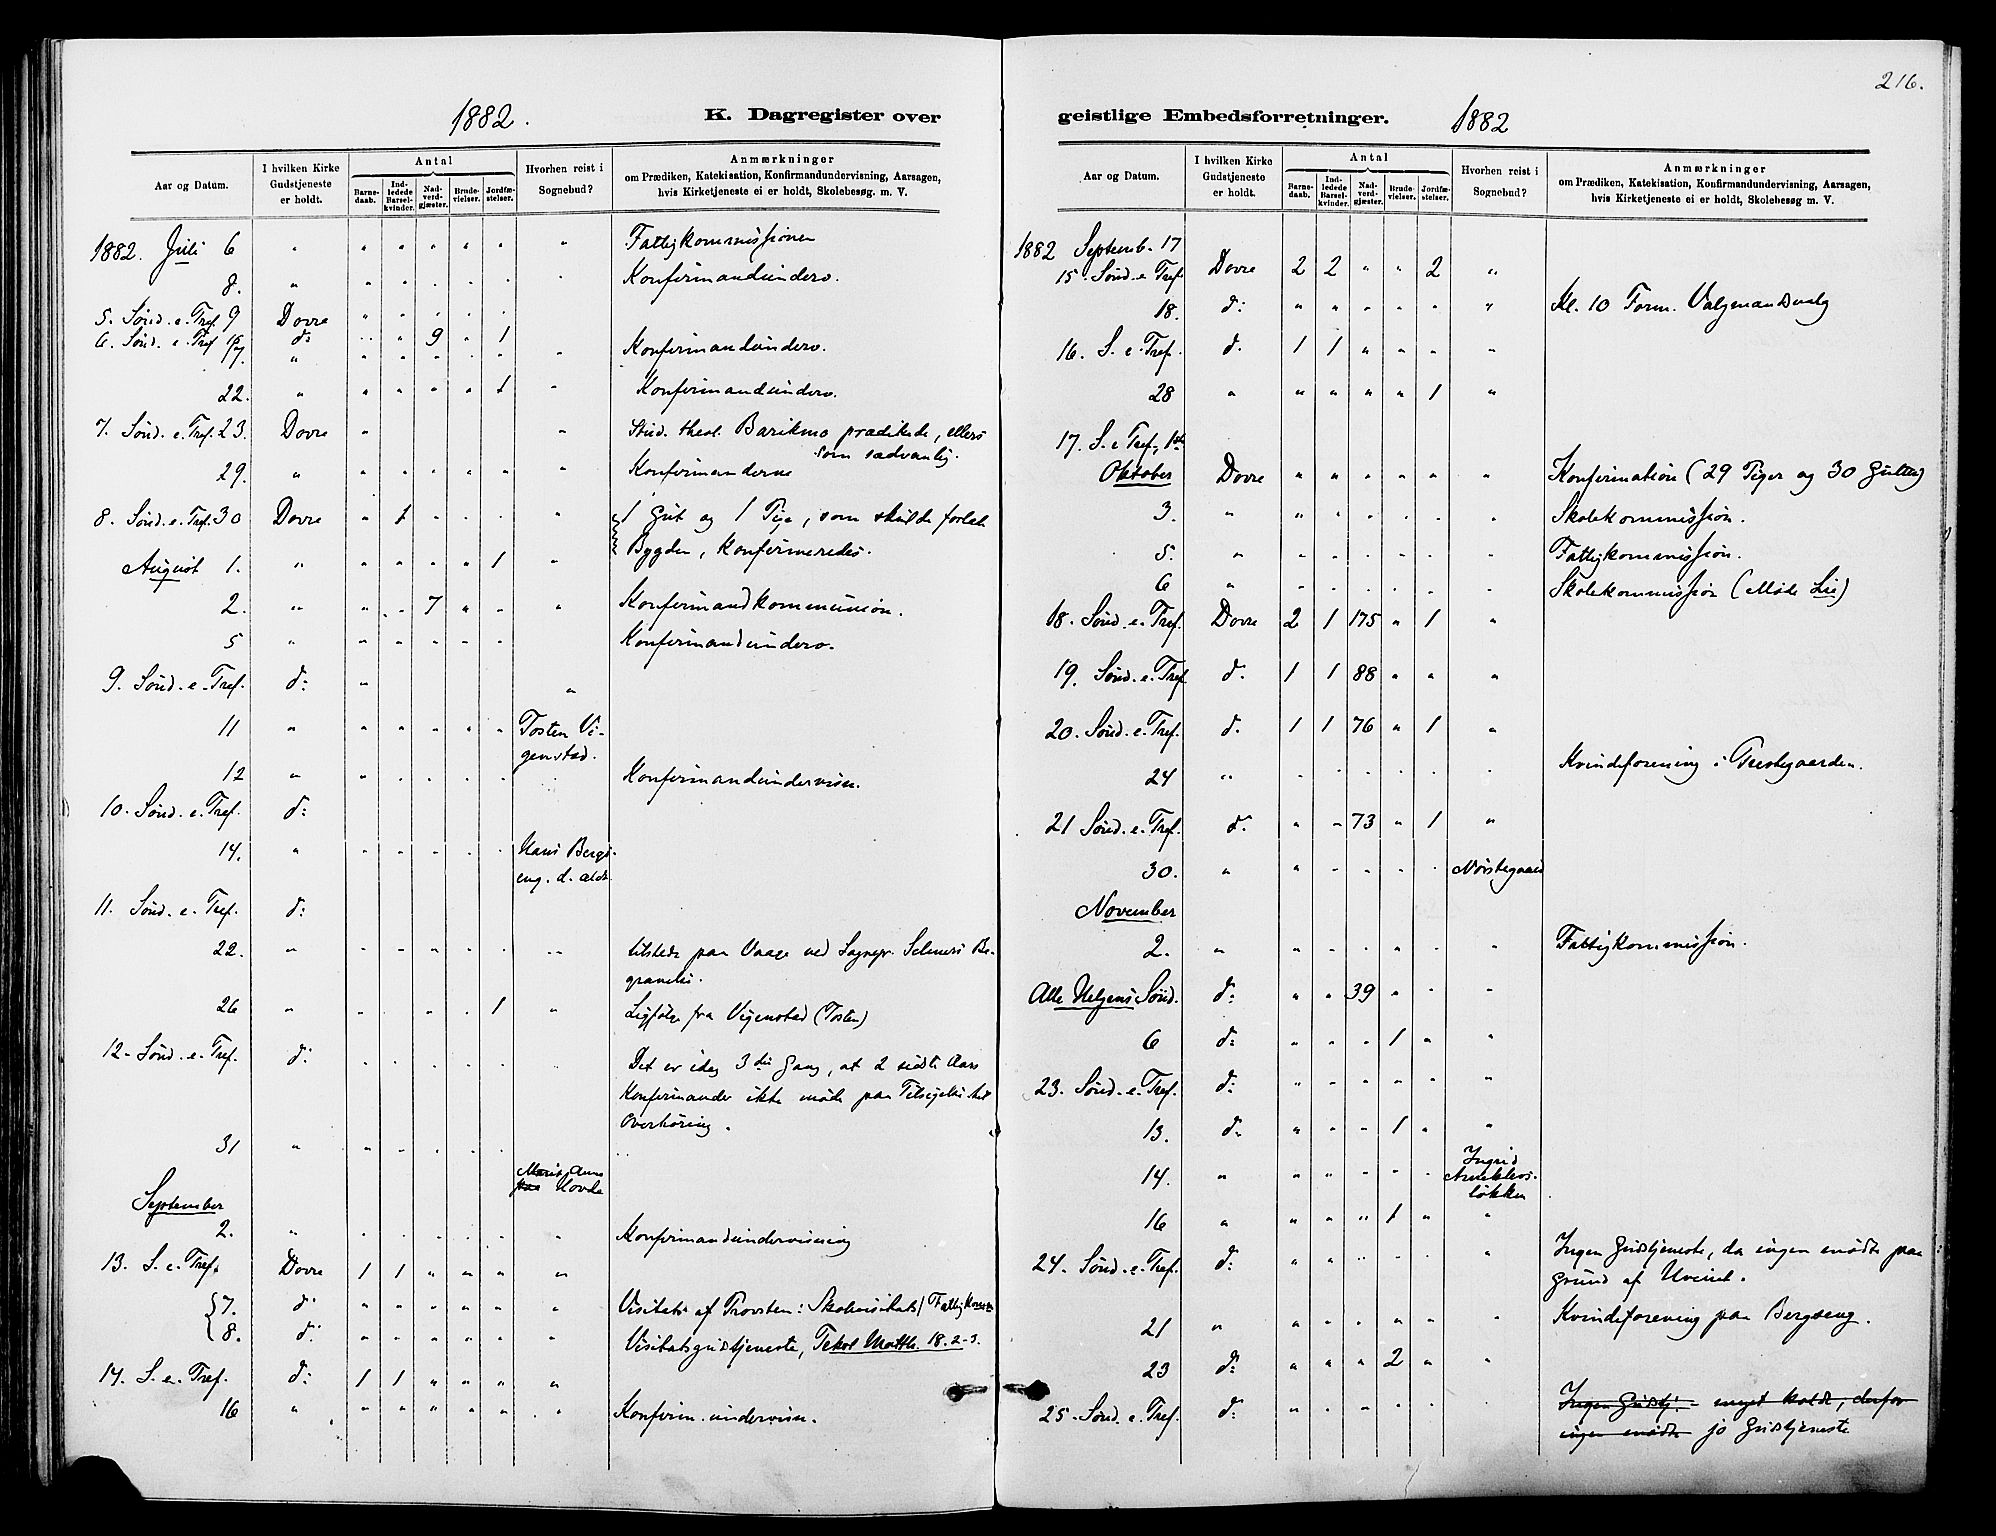 1882.
K. Dagregister over
Aar og Datum.
I hvilken Kirke Gudstjeneste er holdt.
Antal
Barnedaab.
Indledede Barselkvinder.
Nadverdgjæster.
Brudevielser.
Jordfæstelser.
Hvorhen reist i Sognebud?
Anmærkninger
om Prædiken, Katekisation, Konfirmandundervisning, Aarsagen,
hvis Kirketjeneste ei er holdt, Skolebesøg m. V.
1882. Juli 6 " " " " " " " Fattigkommissionen
8. " " " " " " " Konfirmandunderv.
5. Sønd. e. Tref. 9 Dovre " " " " "
6. Sønd. e. Tref 16 d: " " 9 " 1
17. " " " " " " " Konfirmandunderv.
22. " " " " " 1 " Konfirmandunderv.
7. Sønd. e. Tref. 23. Dovre " " Stud. theol. Barikmo prædikede, ellers
som sædvanlig.
29. " " " " " " " Konfirmanderne
8. Sønd. e. Tref. 30 Dovre " 1 " " " " 1 Gut og 1 Pige, som skulde forlate
Bygden, konfirmeredes.
August 1. " " " " " 1 "
2. " " " 7 " " " Konfirmandkommunion.
5 " " " " " " Konfirmandunderv.
9. Sønd. e. Tref. d: " "
11 " " " " " " Tosten Vi-
genstad.
12 " " " " " " Konfirmandundervisn.
10. Sønd. e. Tref. d:
14. " " " " " " Hans Bergs-
eng. d. ældr.
11. Sønd. e. Tref. d:
22. " " " " " " " tilstede paa Vaage ved Sognepr. Selmers Be-
gravelse.
26 " " " " 1 " Ligfølge fra Vigenstad (Tosten)
12. Sønd. e. Tref. d: " " " " " Det er idag 3die Gang, at 2 sidste Aars
Konfirmander ikke møde paa Tilsigelse til
Overhøring.
31 " " " " " "
Marit Aune
paa Hovde
September
2. " " " " " " " Konfirmandundervisning
13. S. e. Tref. Dovre 1 1 " " " "
7. d: " " " " " " Visitats af Provsten: Skolevisitats/Fattigkomm
8. d: " " " " " " Visitatsgudstjeneste, Tekst Matth. 18. 2-3.
14. S. e. Tref. d: 1 1 " " " "
16 " " " " " " " Konfirm. undervisn.
216.
geistlige Embedsforretninger.
1882
Aar og Datum.
I hvilken Kirke Gudstjeneste er holdt.
Antal
Barnedaab.
Indledede Barselkvinder.
Nadverdgjæster.
Brudevielser.
Jordfæstelser.
Hvorhen reist i Sognebud?
Anmærkninger
om Prædiken, Katekisation, Konfirmandundervisning, Aarsagen,
hvis Kirketjeneste ei er holdt, Skolebesøg m. V.
1882 Septemb. 17
15. Sønd. e. Tref. Dovre 2 2 " " 2 "
18. d: " " " " " " Kl. 10 Form. Valgmandsvalg
16. S. e. Tref. d. 1 1 " " " "
28 " " " " " 1 "
17. S. e Tref., 1ste
Oktober Dovre " " " " " " Konfirmation (29 Piger og 30 Gutter)
3. " " " " " " " Skolekommission.
5. " " " " " " " Fattigkommission.
6 " " " " " " " Skolekommission (Møde Lie)
18. Sønd. e. Tref. Dovre 2 1 175 " 1 "
19. Sønd. e. Tref d. 1 1 88 " " "
20. Sønd. e. Tref. d. 1 1 76 " 1 "
24 " " " " " " " Kvindeforening i Prestegaarden.
21 Sønd. e. Tref. d. " " 73 " 1 "
30. " " " " " " Nørstegaard
November
2. " " " " " " " Fattigkommission.
Alle Helgens Sønd. d: " " 39 " " "
6 d: " " " 1 " "
23. Sønd. e. Tref. d: " " " " " "
13. d: " " " 1 " "
14. " " " " " " Ingrid
løkken
16 " " " " 1 " "
24. Sønd. e. Tref. d: " " " " " " Ingen Gudstjeneste, da ingen mødte paa
Grund af Uveiret.
21 " " " " " " " Kvindeforening paa Bergseng.
23 d: " " " 2 " "
25. Sønd. e. Tref. d: " " " " " " Ingen Gudstj. - meget koldt, derfor
ingen mødte jo Gudstjeneste